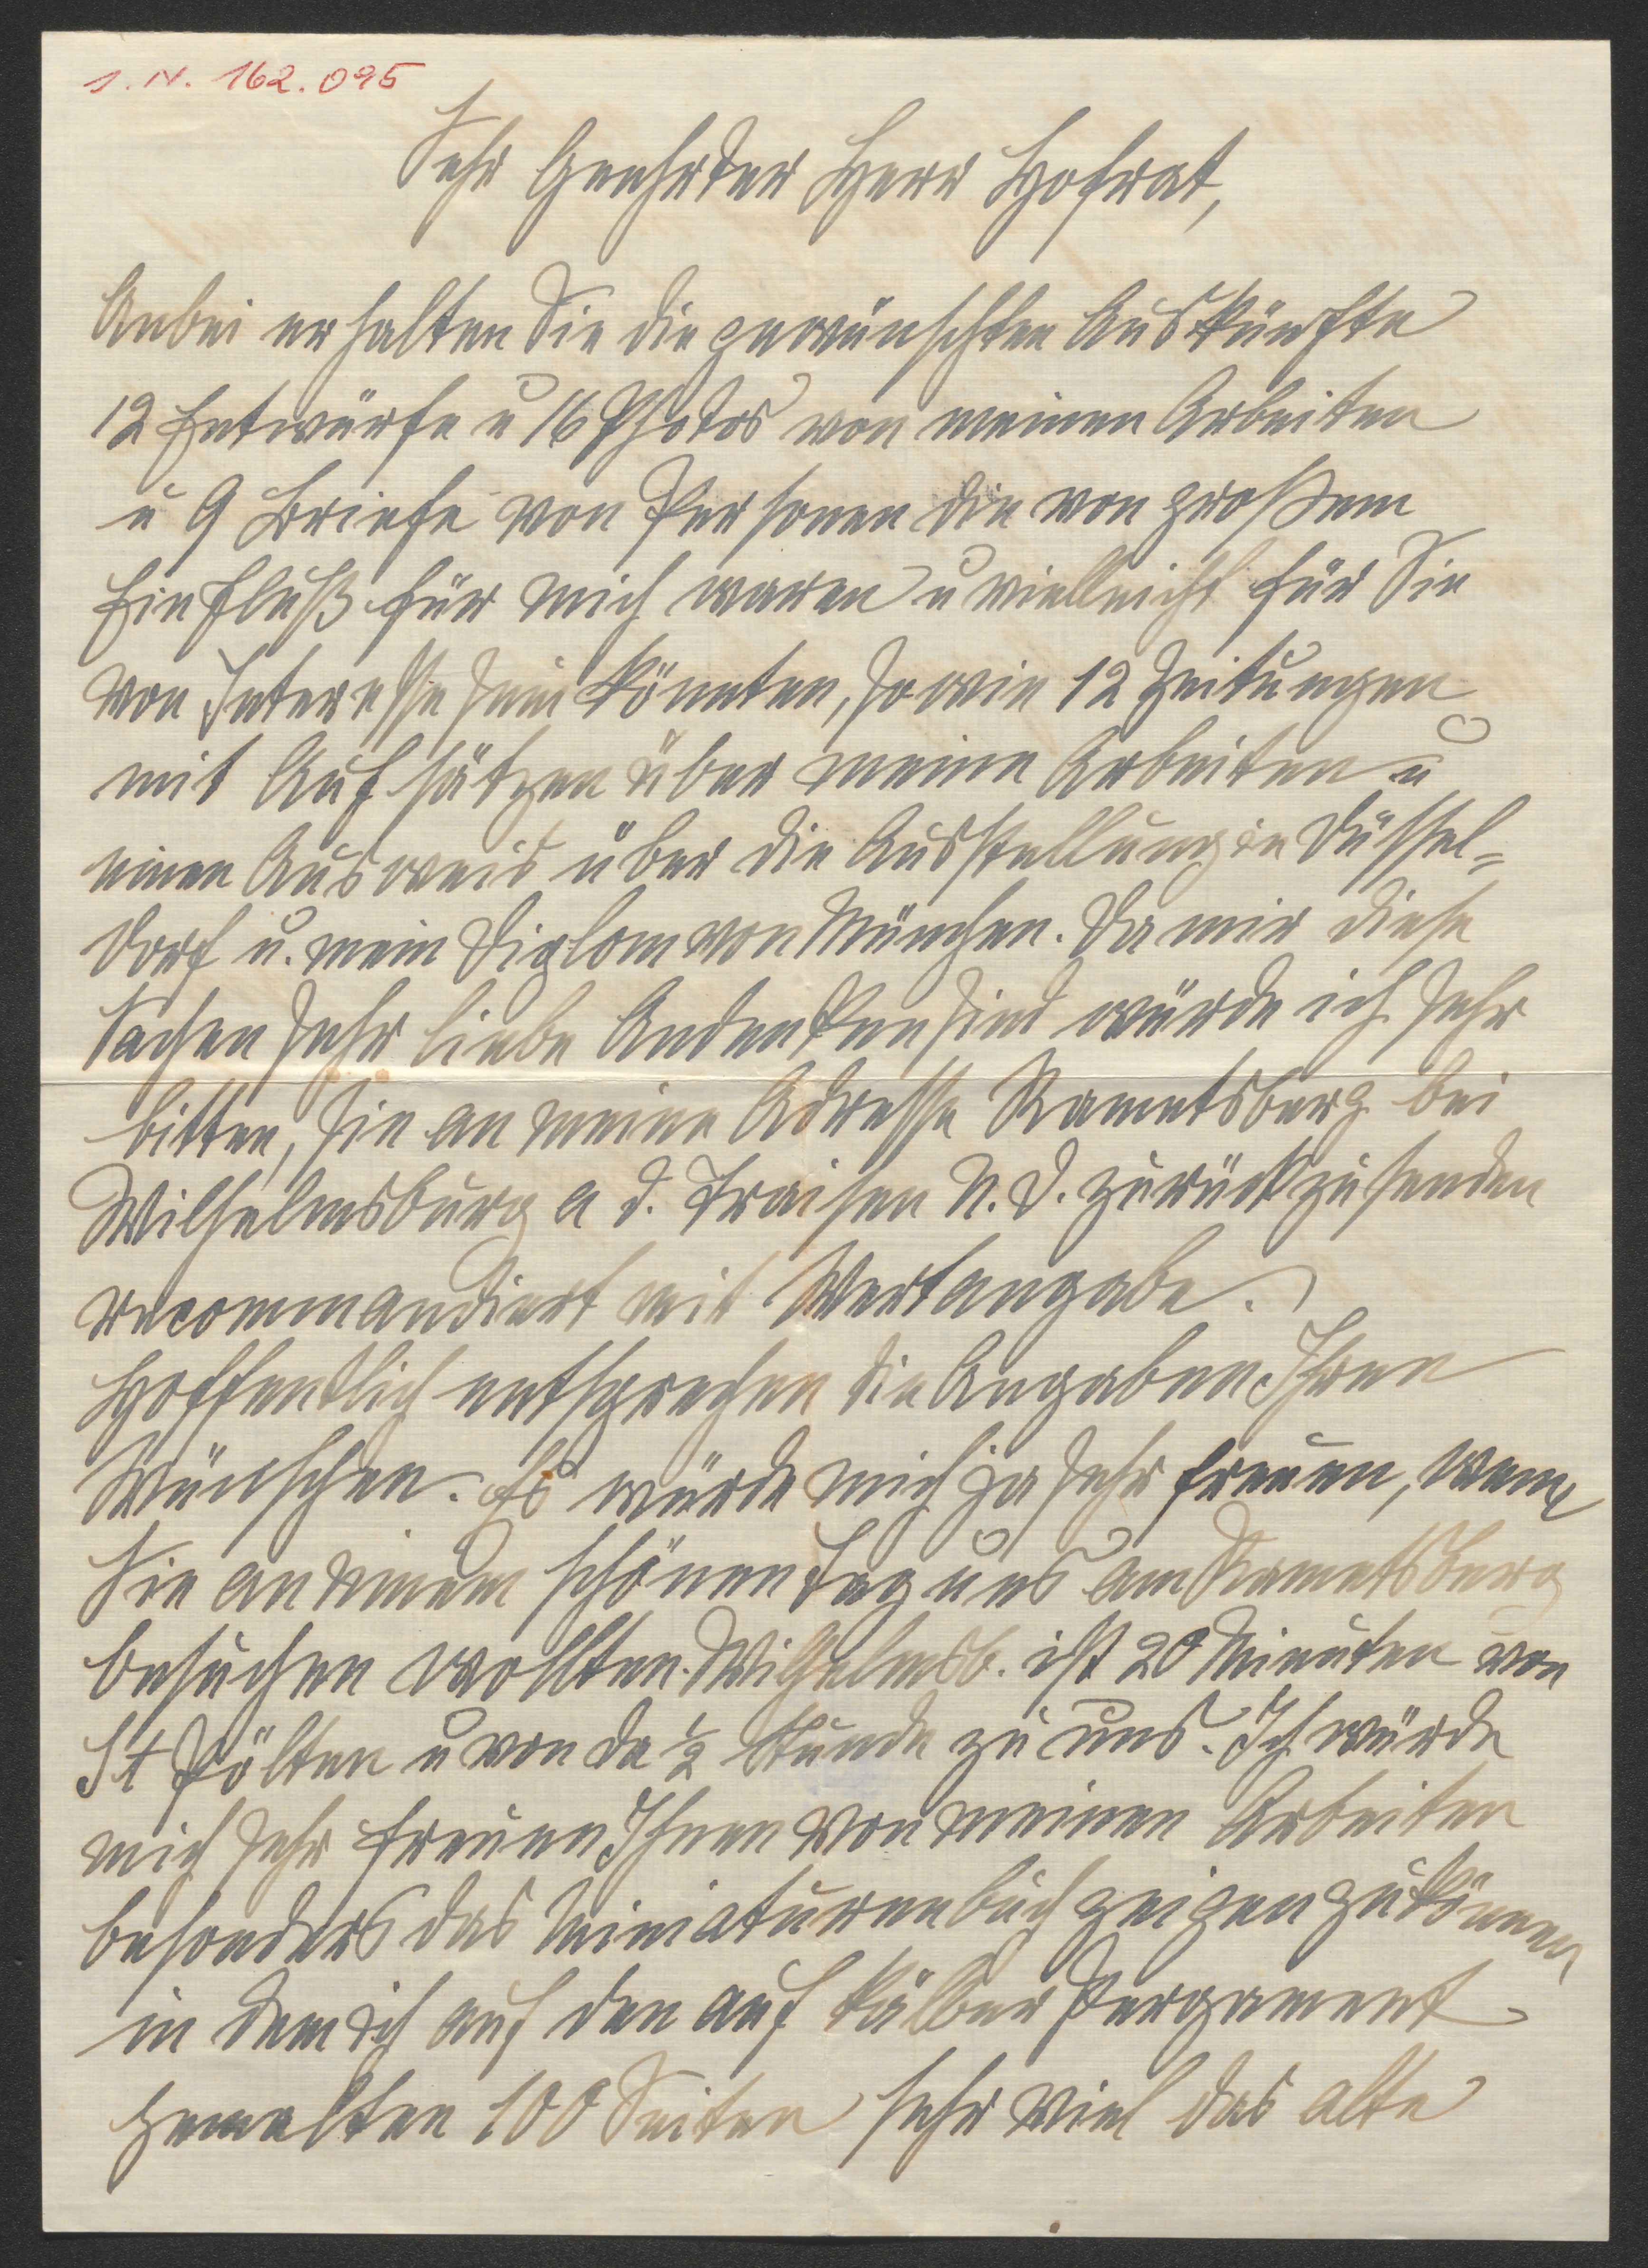 I. N. 162.095
Sehr Geehrter Herr Hofrat,
Anbei erhalten Sie die gewünschten Auskünfte
12 Entwürfe u 16 Photos von meinen Arbeiten
u 9 Briefe von Personen die von großem
Einfluß für mich waren u vielleicht für Sie
von Interesse sein könnten, sowie 12 Zeitungen
mit Aufsätzen über meine Arbeiten u
einen Ausweis über die Ausstellung in Düssel=
dorf u. mein Diplom von München. Da mir diese
Sachen sehr liebe Andenken sind würde ich sehr
bitten, sie an meine Adresse Rametsberg bei
Wilhelmsburg a d. Traisen N. Ö. zurückzusenden
recommandiert mit Wertangabe.
Hoffentlich entsprechen die Angaben Ihren
Wünschen. Es würde mich ja sehr freuen, wenn
Sie an einem schönen Tag uns am Rametsberg
besuchen wollten. Wilhelmsb. ist 20 Minuten von
St Pölten u von da ½ Stunde zu uns. Ich würde
mich sehr freuen Ihnen von meinen Arbeiten
besonders das Miniaturenbuch zeigen zu können
in dem ich auf den auf Kälber Pergament
gemalten 100 Seiten sehr viel das alte